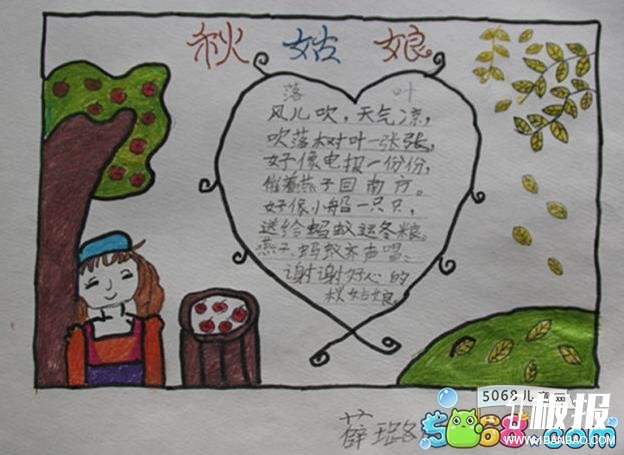 秋姑娘
落叶
风儿吹，天气凉，
吹落树叶一张张，
好像电报一份份，
催着燕子回南方。
好像小船一只只，
送给蚂蚁运冬粮。
燕子、蚂蚁齐声唱：
谢谢好心的
秋姑娘。
薛璐
5068儿童网
5068.com
板报
WWW.1BANBAO.COM